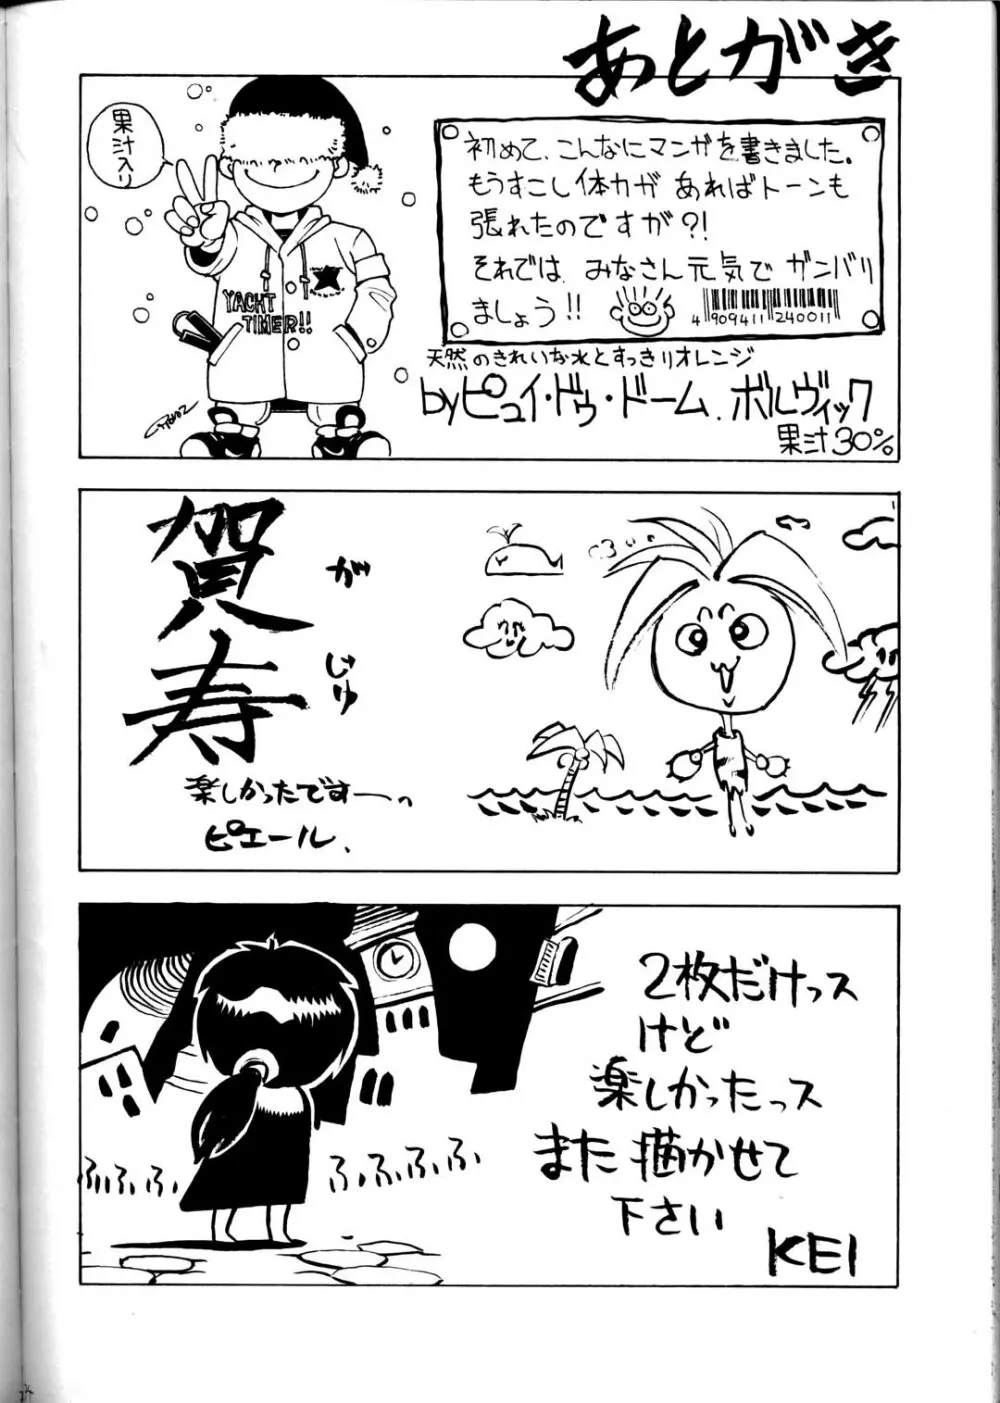 あとがき
果汁入り
初めて、こんなにマンガを書きました。
もうすこし体力が あればトーンも
張れたのですが?!
それでは、みなさん元気で ガンバリ
ましょう!!
4 909411 240011
YACHT
TIMER!!
天然のきれいな水とすっきりオレンジ
byピュイ・ドゥ・ドーム、ボルヴィック
果汁30%
賀寿
がじゅ
楽しかったですー。
ピエール、
2枚だけっス
けど
楽しかったっス
また描かせて
下さい
KEI
ふふふふ
ふふふふふ